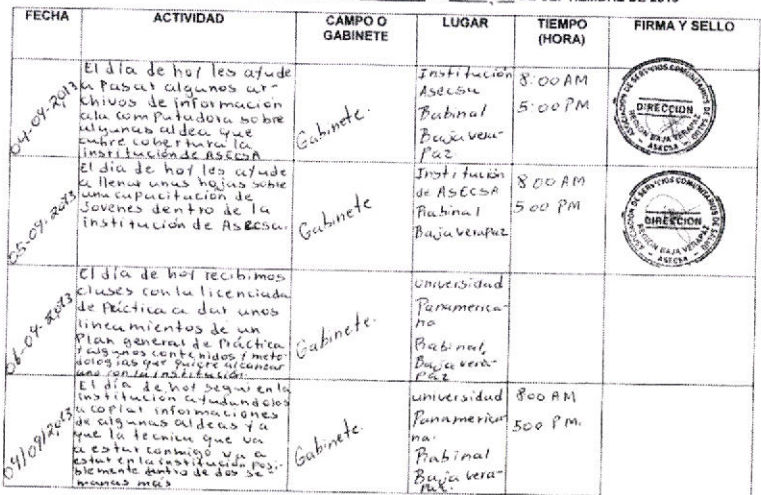 SEPTIEMBRE DE 2013
FECHA
ACTIVIDAD
CAMPO O
GABINETE
LUGAR
TIEMPO
(HORA)
FIRMA Y SELLO
04-09-2013
El día de hoy les ayude
a Pasar algunos ar-
chivos de información
ala computadora sobre
algunas aldea que
cubre cobertura la
institución de ASECSA
Gabinete.
Institución
Asecsa
Rabinal
Baja vera-
Paz
8:00 AM
5:00 PM
ASOCIACION DE SERVICIOS COMUNITARIOS DE SALUD
DIRECCION
REGION BAJA VERAPAZ
ASECSA
05-09-2013
El día de hoy les ayude
a llenar unas hojas sobre
una capacitación de
Jovenes dentro de la
institución de Asecsa.
Gabinete
Institución
de ASECSA
Rabinal
Baja verapaz
8 00 AM
5 00 PM
ASOCIACION DE SERVICIOS COMUNITARIOS DE SALUD
DIRECCION
REGION BAJA VERAPAZ
ASECSA
06-09-2013
El día de hoy recibimos
clases con la licenciada
de Práctica a dar unos
lineamientos de un
Plan general de Práctica
y algunos contenidos y meto-
dologías que quiere alcanzar
uno con la institución.
Gabinete.
universidad
Panamerica-
na
Rabinal,
Baja vera-
Paz
09/09/2013
El día de hoy seguí en la
institución ayudandolos
a copiar informaciones
de algunas aldeas ya
que la tecnica que va
a estar conmigo va a
estar en la institución Posi-
blemente dentro de dos se-
manas más
Gabinete.
universidad
Panamerica-
na.
Rabinal
Baja vera-
Paz.
800 AM
500 PM.